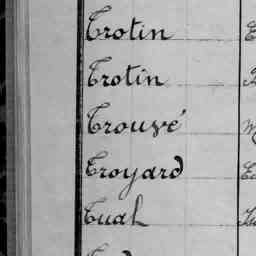 Trotin
Trotin
Trouvé
Troyard
Tual